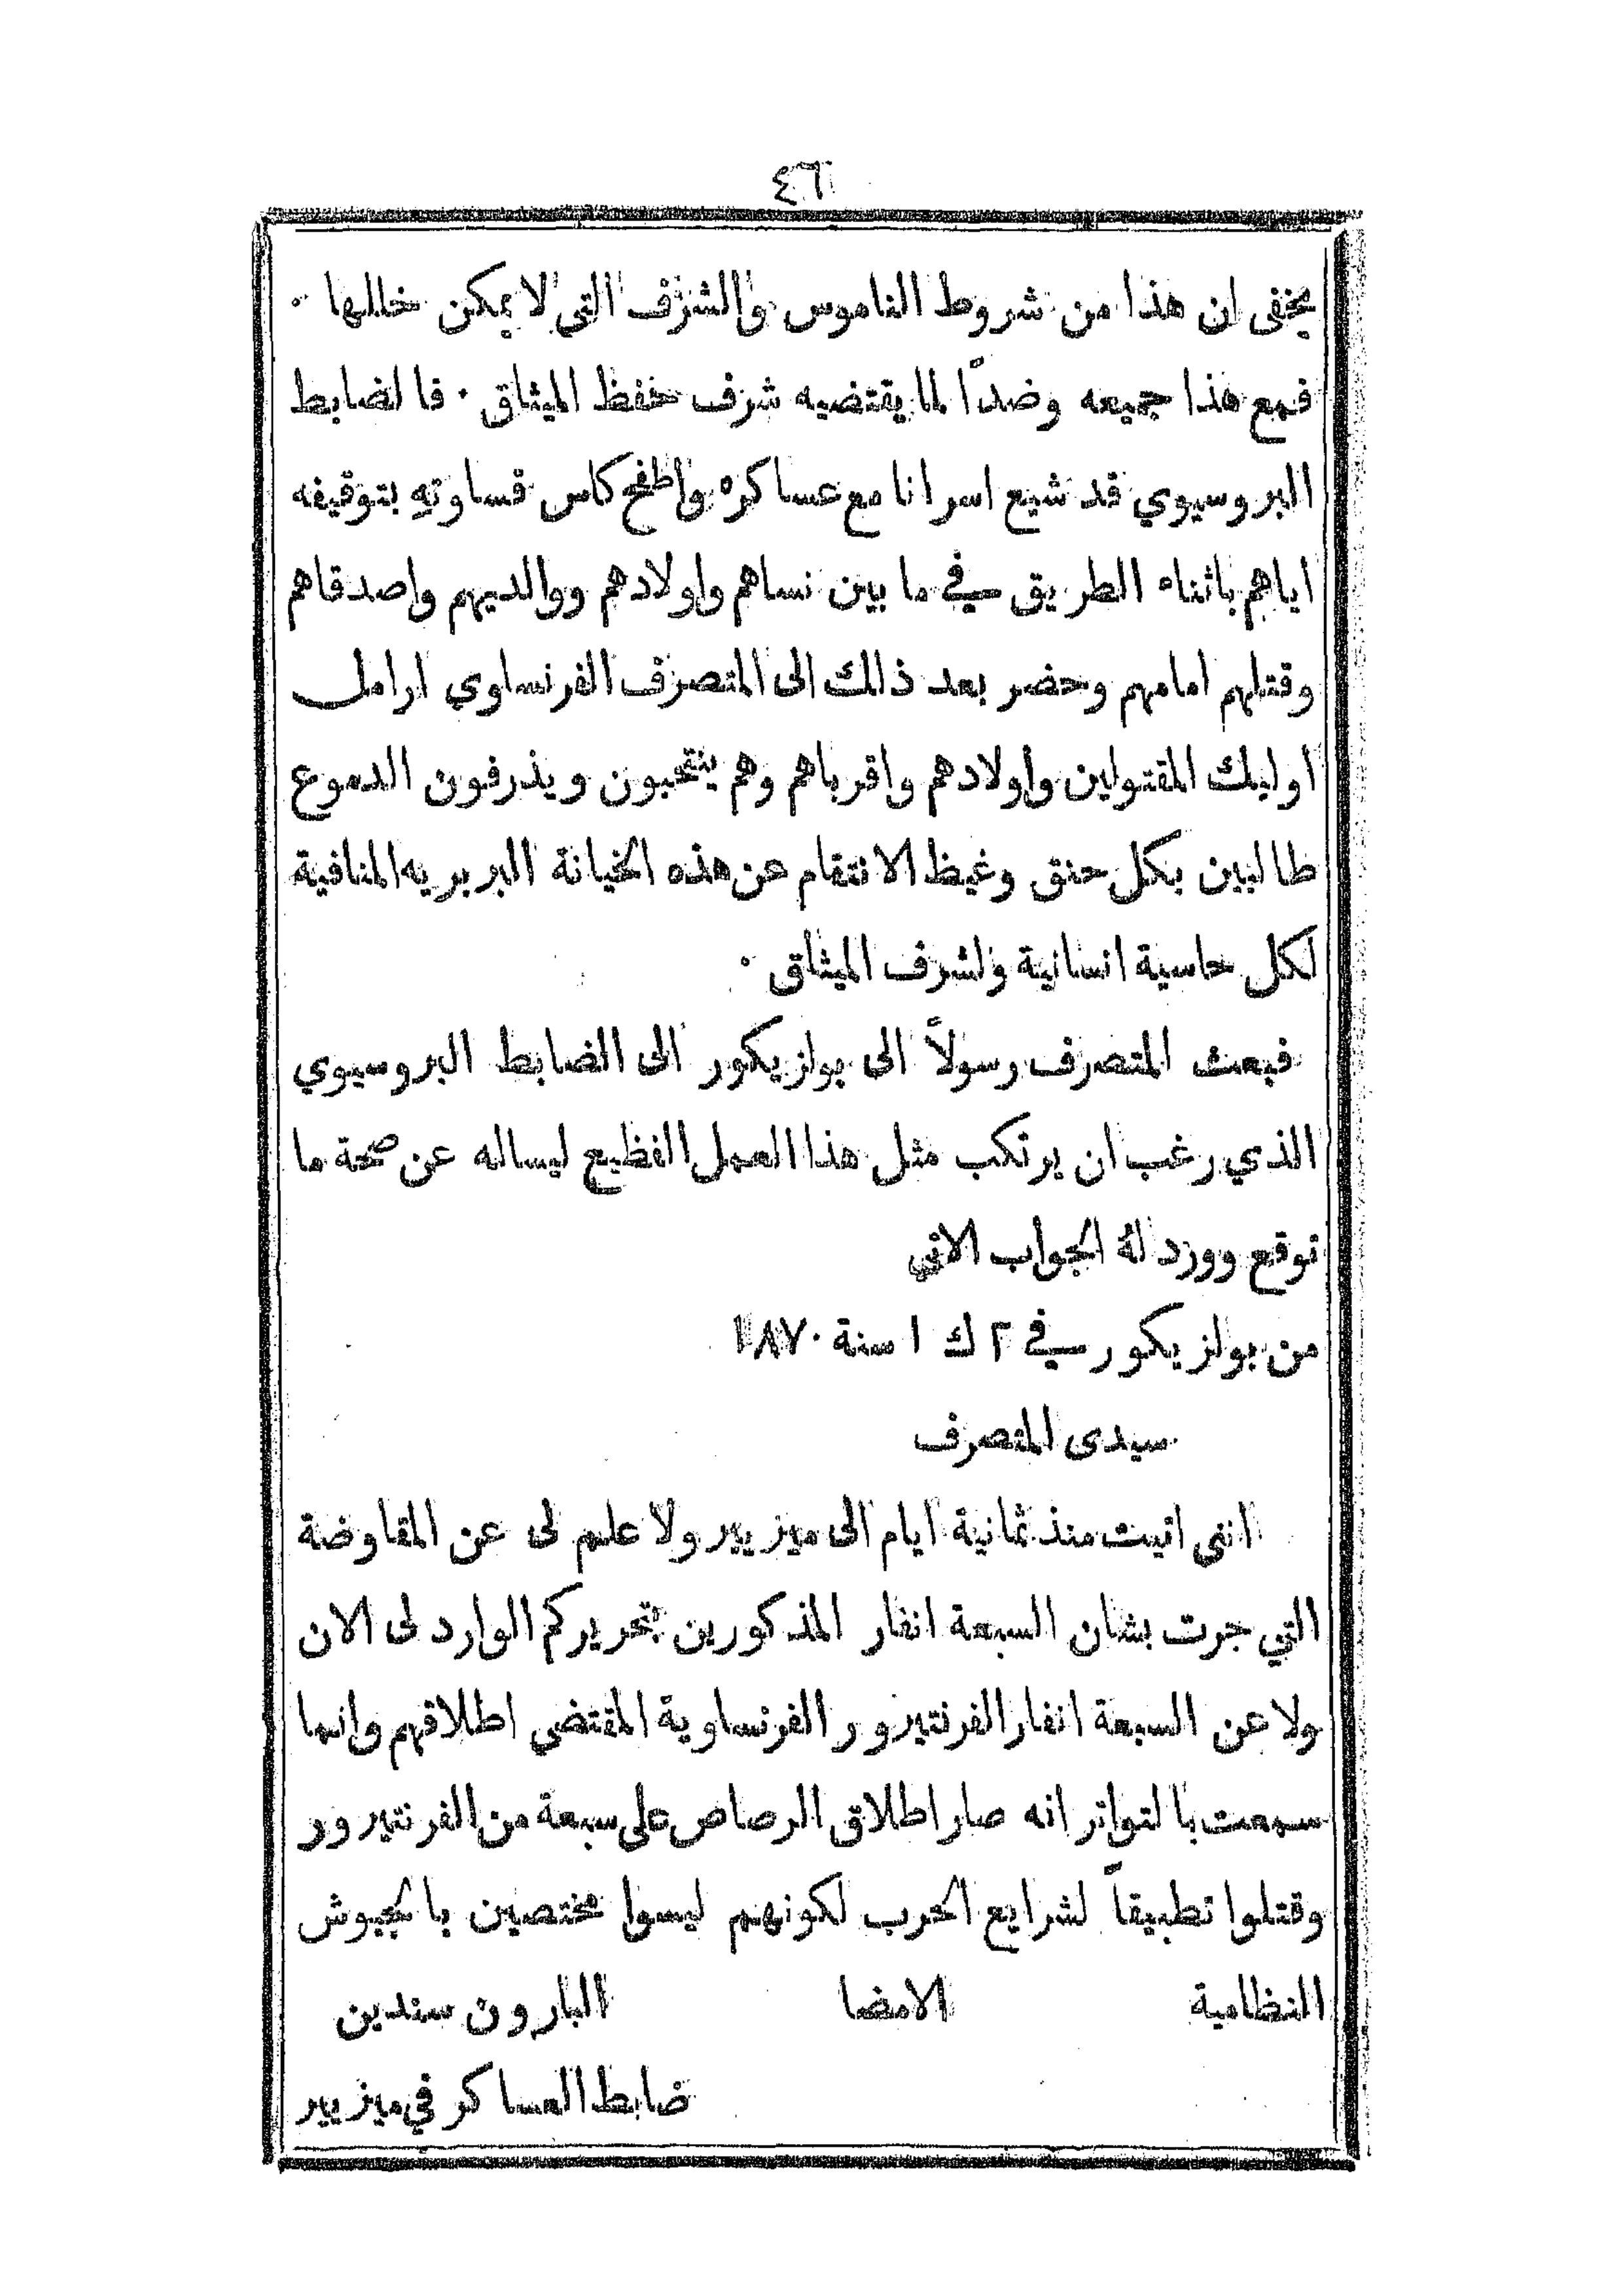 ٤٦
يخفى ان هذا من شروط الناموس والشرف التي لا يمكن خللها ٠
فمع هذا جميعه وضدًا لما يقتضيه شرف حفظ الميثاق ٠ فالضابط
البروسيوي قد شيع اسرانا مع عساكره واطفح كاس قساوتهِ بتوقيفه
اياهم باثناء الطريق في ما بين نساهم واولادهم ووالديهم واصدقاهم
وقتلهم امامهم وحضر بعد ذالك الى المتصرف الفرنساوي ارامل
اوليك المقتولين واولادهم واقرباهم وهم ينتحبون ويذرفون الدموع
طالبين بكل حنق وغيظ الانتقام عن هذه الخيانة البربريه المنافية
لكل حاسية انسانية ولشرف الميثاق ٠
فبعث المتصرف رسولاً الى بولزيكور الى الضابط البروسيوي
الذي رغب ان يرتكب مثل هذا العمل الفظيع ليساله عن صحة ما
توقع وورد لهُ الجواب الاتي
من بولزيكور في ٢ ك ١ سنة ١٨٧٠
سيدى المتصرف
انني اتيت منذ ثمانية ايام الى ميزيير ولا علم لى عن المقاوضة
التي جرت بشان السبعة انفار المذكورين بتحريركم الوارد لى الان
ولا عن السبعة انفار الفرنتيرور الفرنساوية المقتضي اطلاقهم وانما
سمعت بالتواتر انه صار اطلاق الرصاص على سبعة من الفرنتيرور
وقتلوا تطبيقاً لشرايع الحرب لكونهم ليسوا مختصين بالجيوش
النظامية الامضا البارون سندين
ضابط العساكر في ميزيير